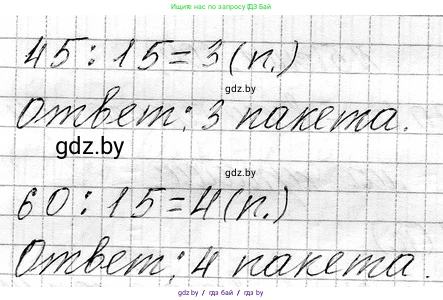 Ищите нас по запросу "гдз бай"
45 : 15 = 3 (п.)
gdz.by
Ответ: 3 пакета.
gdz.by
gdz.by
60 : 15 = 4 (п.)
Ответ: 4 пакета.
gdz.by / гдз бай / gdz by